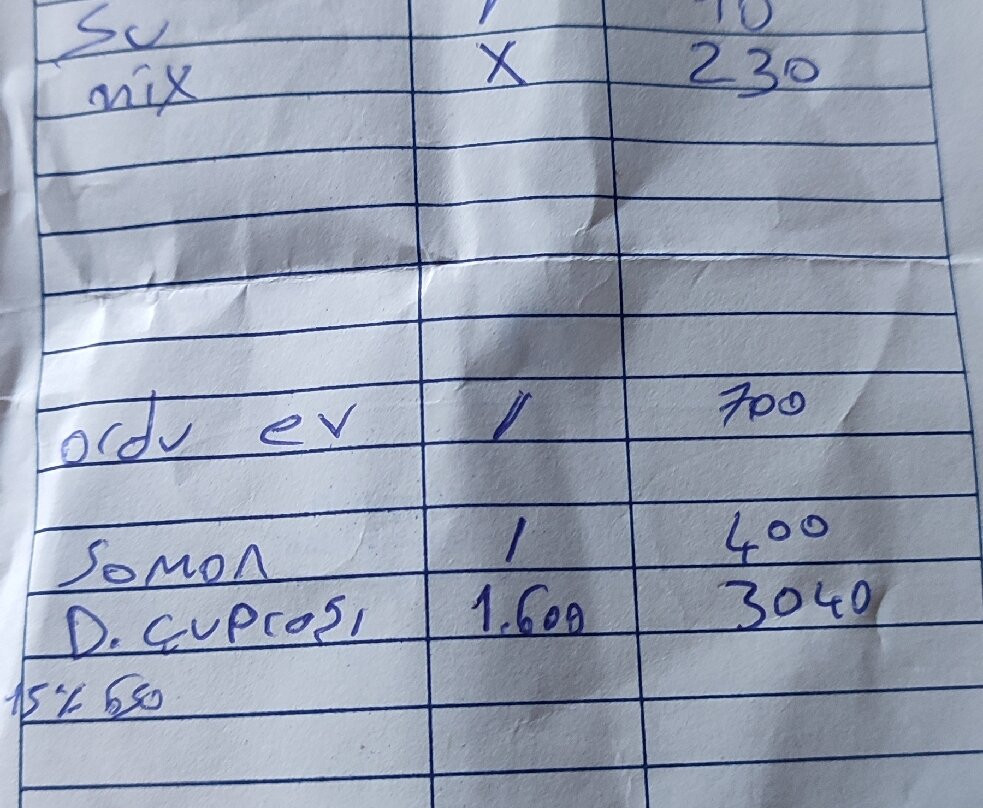 Su / 70
mix X 230
ordu ev / 700
Somon / 400
D. çuprası 1.600 3040
15% 650